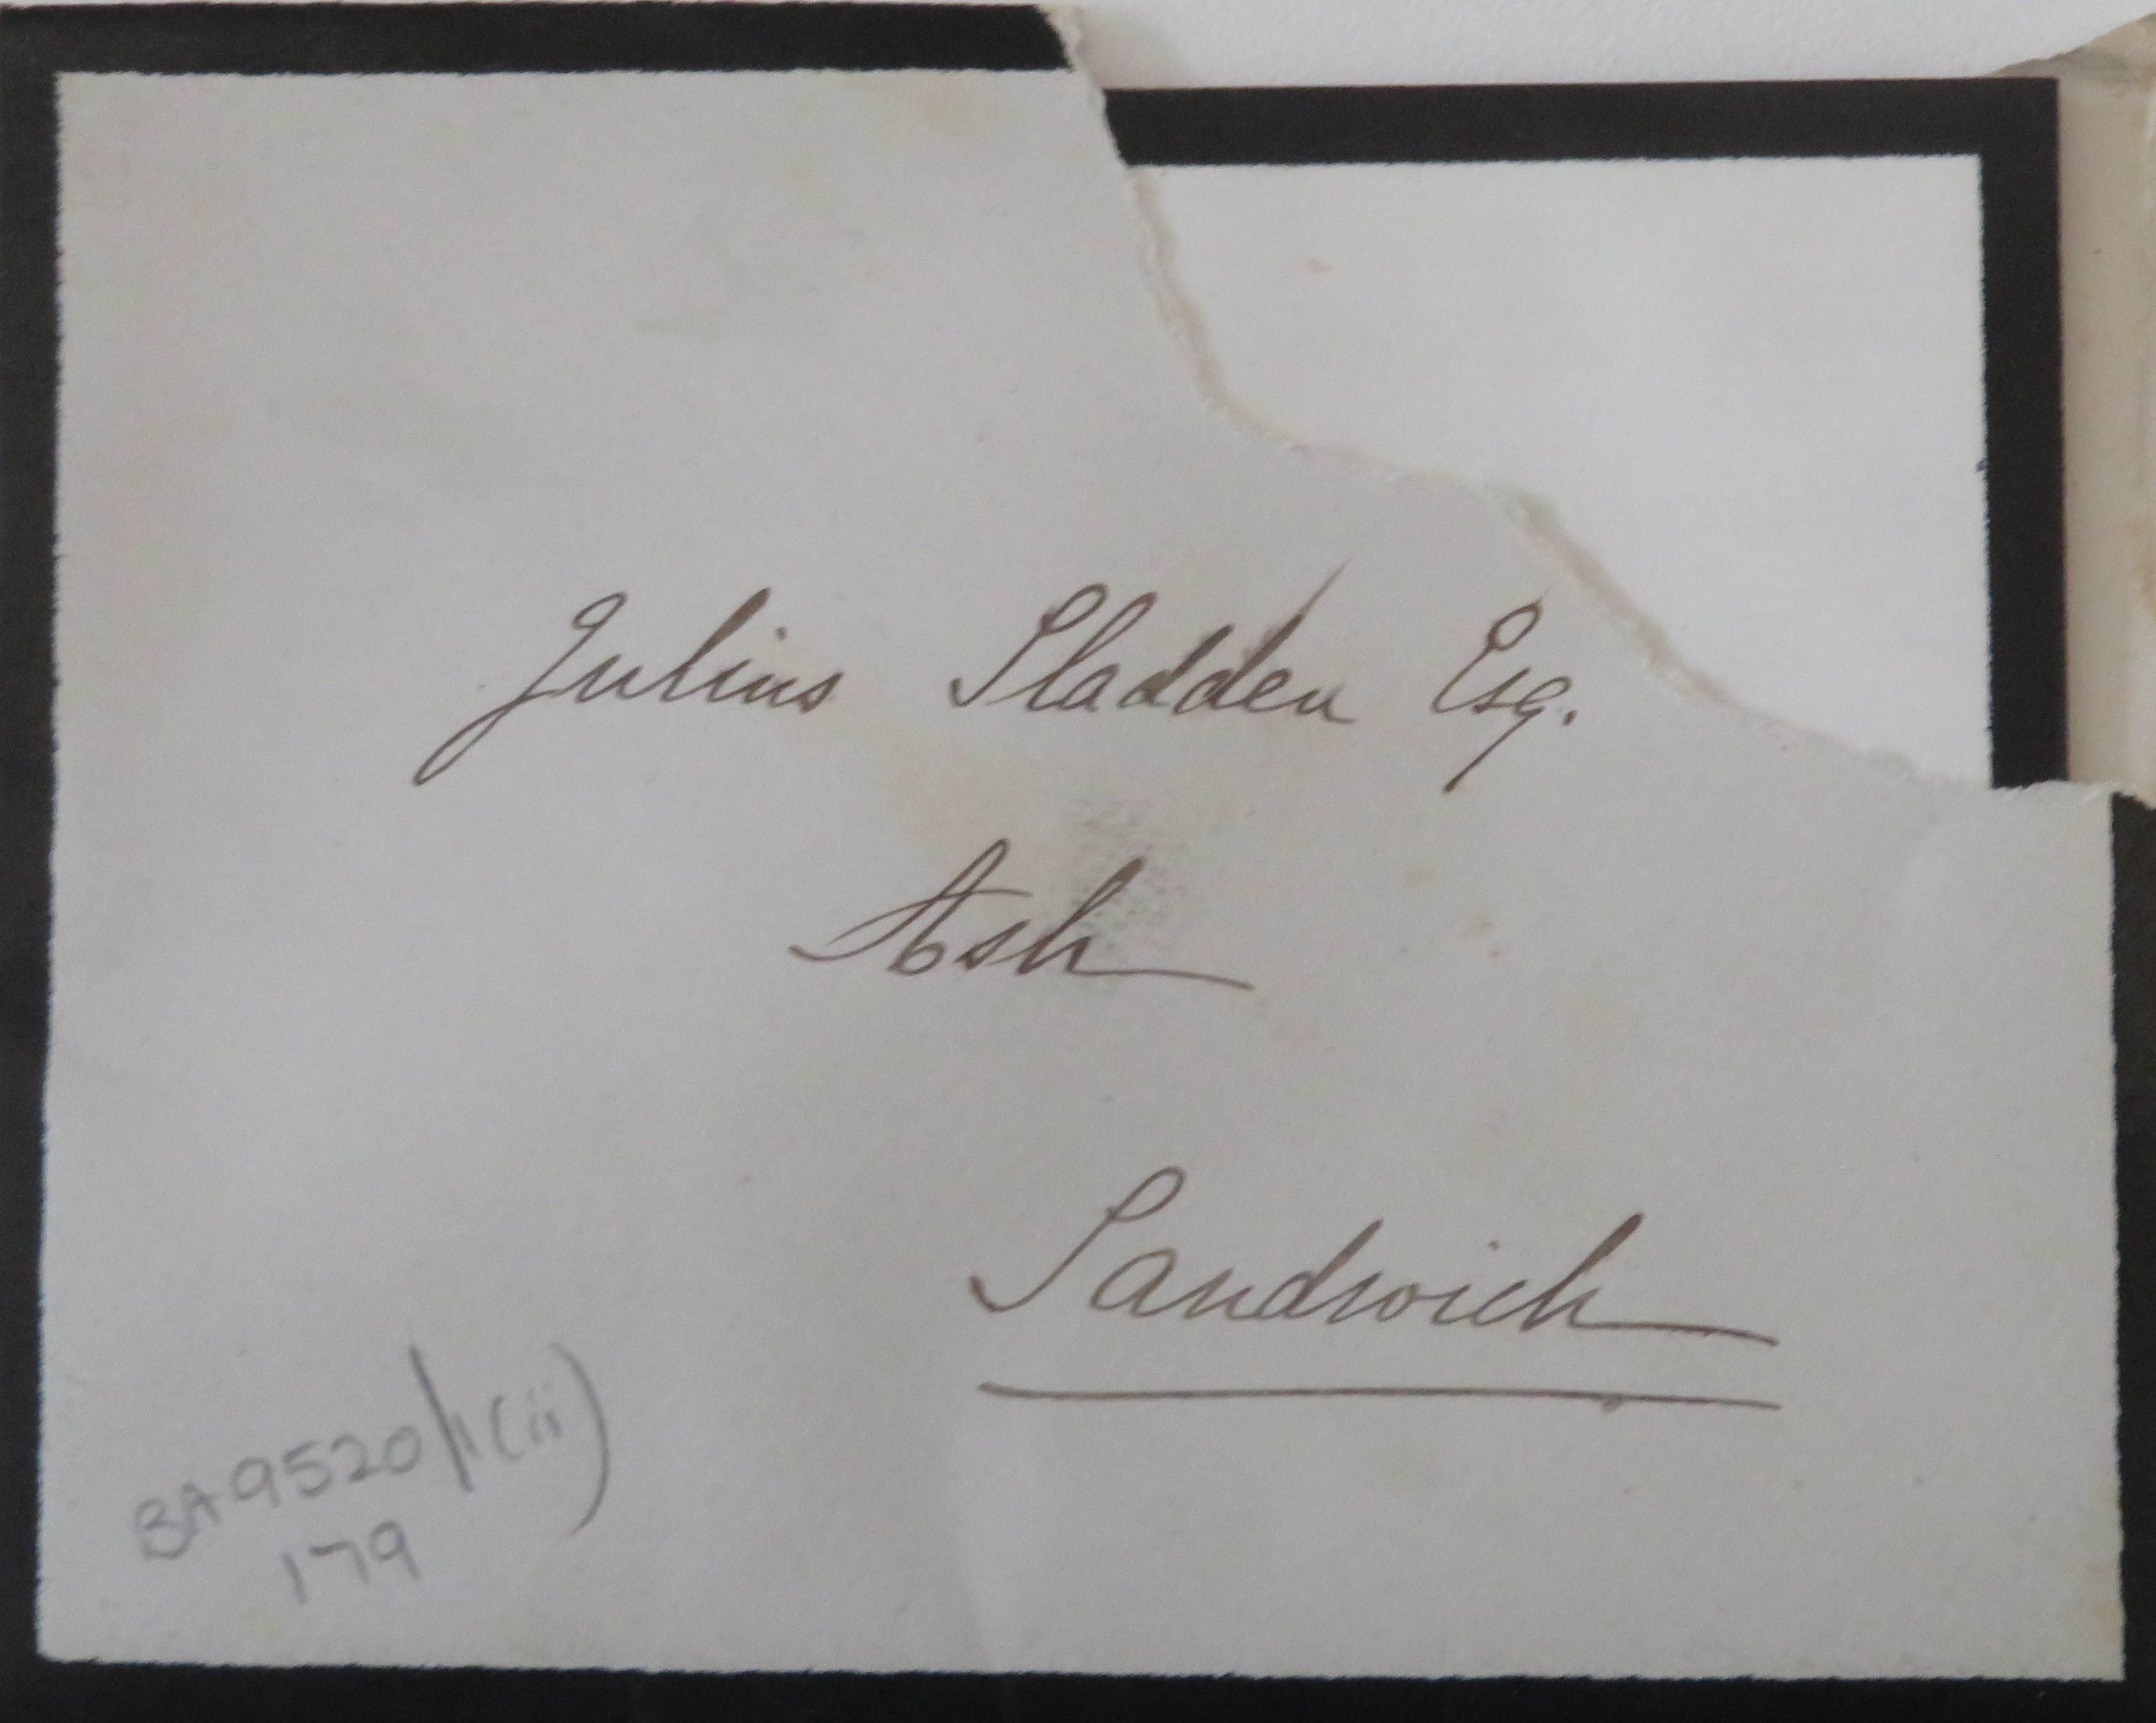 Julius Sladden Esq.
Ash
Sandwich
BA9520/1(ii)
179